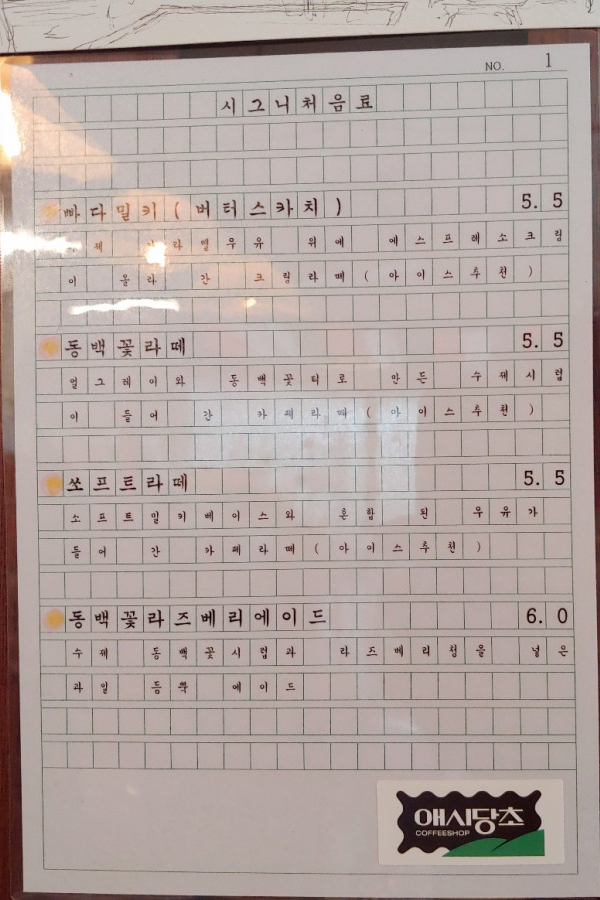 NO. 1
시그니처음료
빠다밀키(버터스카치) 5.5
수제 카라멜우유 위에 에스프레소크림
이 올라 간 크림라떼(아이스추천)
동백꽃라떼 5.5
얼그레이와 동백꽃티로 만든 수제시럽
이 들어 간 카페라떼(아이스추천)
쏘프트라떼 5.5
소프트밀키베이스와 혼합 된 우유가
들어 간 카페라떼(아이스추천)
동백꽃라즈베리에이드 6.0
수제 동백꽃시럽과 라즈베리청을 넣은
과일 듬뿍 에이드
애시당초
COFFEESHOP